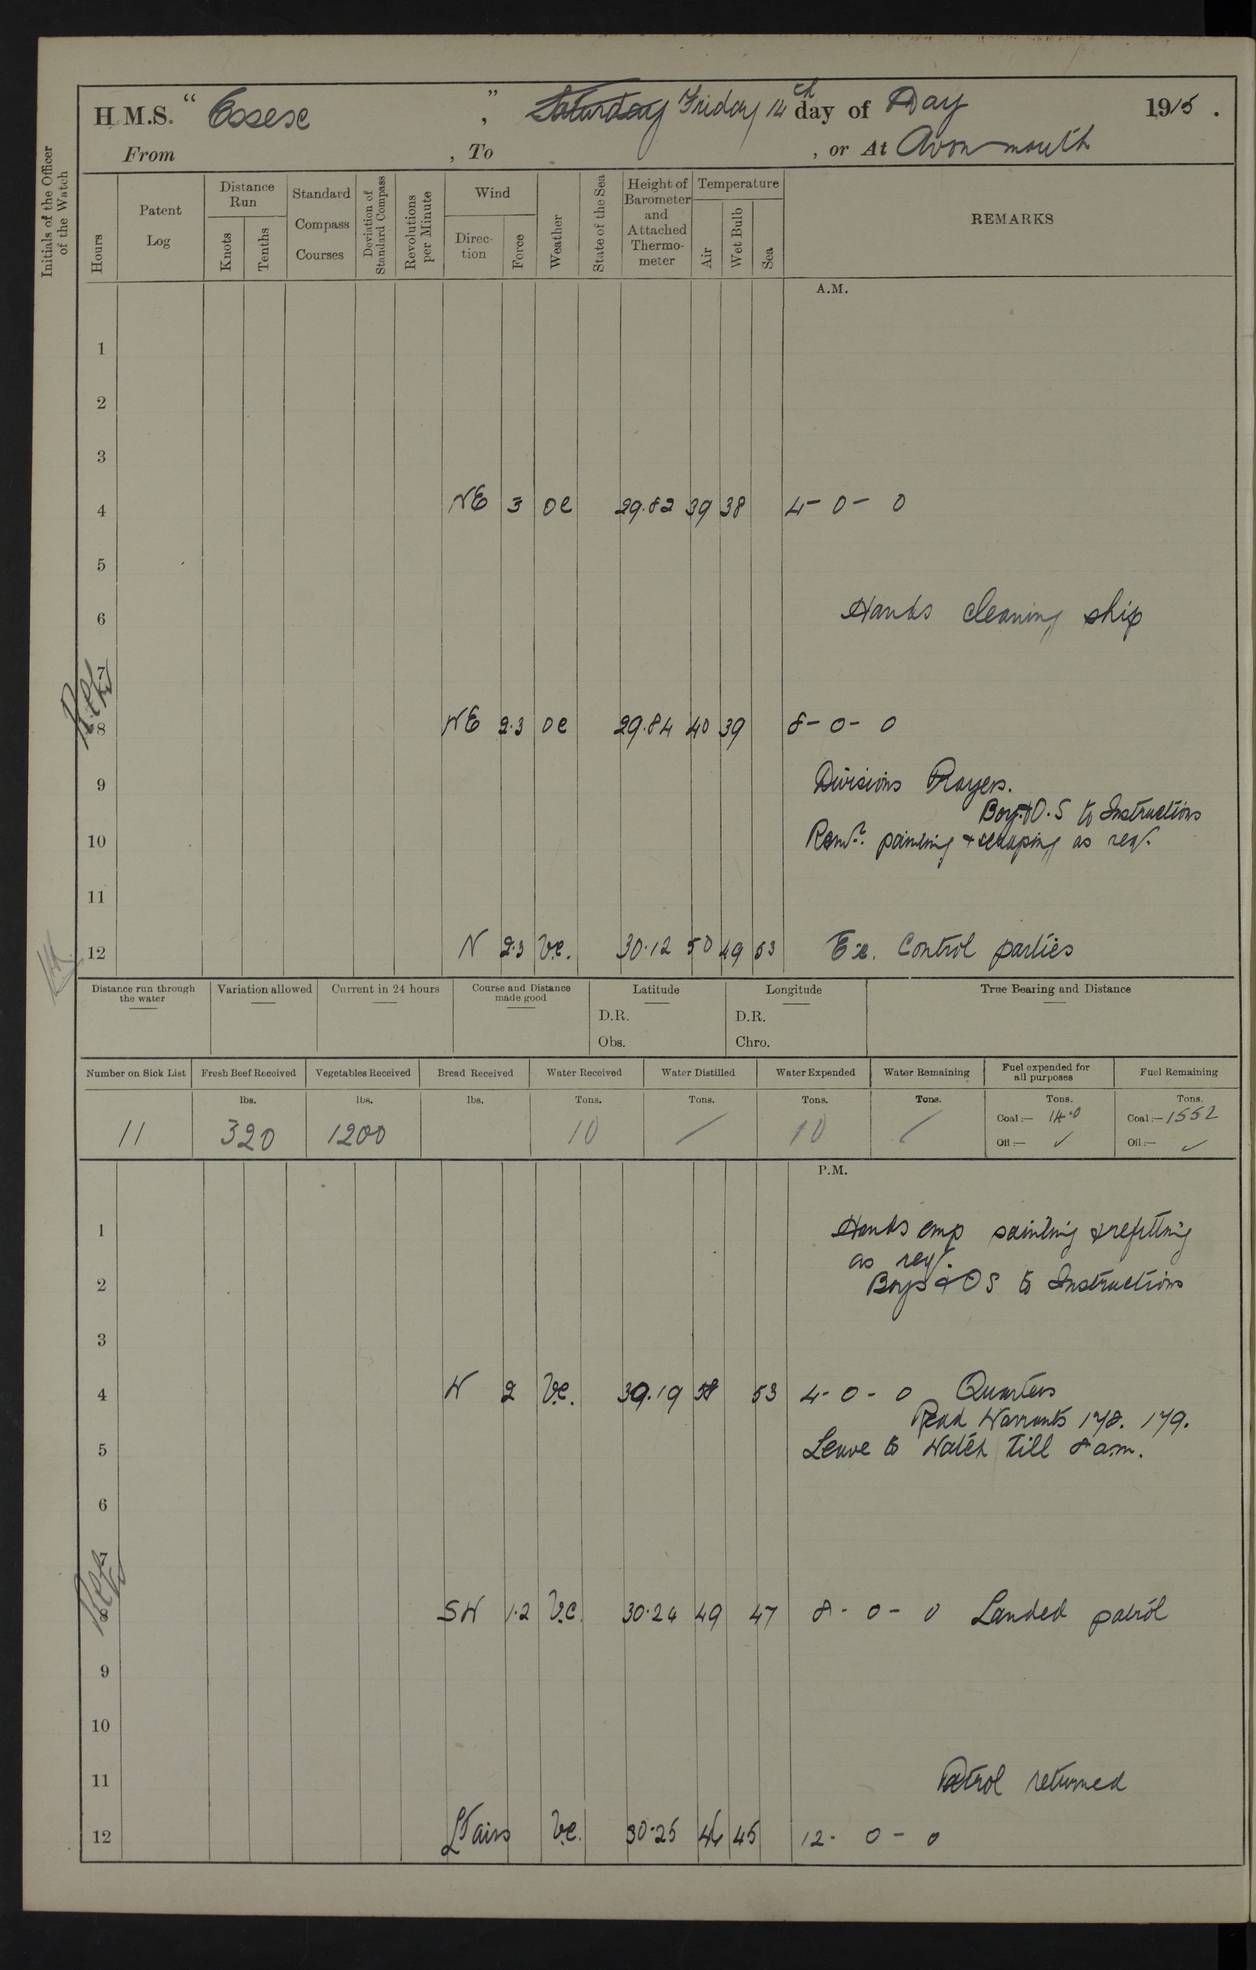 H.M.S. "Essex", Saturday Friday 14th day of May 1915.
From , To , or At Avonmouth
Initials of the Officer of the Watch
Hours
Patent Log
Distance Run
Knots
Tenths
Standard Compass Courses
Deviation of Standard Compass
Revolutions per Minute
Wind
Direction
Force
Weather
State of the Sea
Height of Barometer and Attached Thermometer
Temperature
Air
Wet Bulb
Sea
REMARKS
A.M.
1
2
3
4 NE 3 oc 29.82 39 38 4-0-0
5
6 Hands cleaning ship
7
8 NE 2.3 oc 29.84 40 39 8-0-0
9 Divisions Prayers.
Boys & O.S to Instructions
10 Remdr. painting & scraping as req.
11
12 N 2.3 b.c. 30.12 50 49 53 Ex. Control parties
Distance run through the water
Variation allowed
Current in 24 hours
Course and Distance made good
Latitude
D.R.
Obs.
Longitude
D.R.
Chro.
True Bearing and Distance
Number on Sick List
Fresh Beef Received
Vegetables Received
Bread Received
Water Received
Water Distilled
Water Expended
Water Remaining
Fuel expended for all purposes
Fuel Remaining
lbs. lbs. lbs. Tons. Tons. Tons. Tons. Tons. Tons.
11 320 1200 10 / 10 / Coal:— 14.0 Coal:— 1552
Oil:— ✓ Oil:— ✓
P.M.
1 Hands emp painting & refitting
as req.
2 Boys & OS to Instructions
3
4 W 2 b.c. 30.19 58 53 4-0-0 Quarters
Read Warrants 178. 179.
5 Leave to Watch till 8 am.
6
7
8 SW 1.2 b.c. 30.24 49 47 8-0-0 Landed patrol
9
10
11 Patrol returned
12 Lt airs b.c. 30.25 46 45 12-0-0